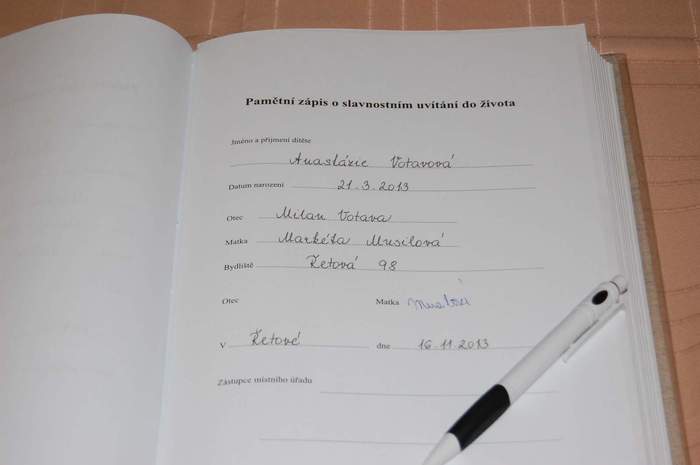 Pamětní zápis o slavnostním uvítání do života
Jméno a příjmení dítěte
Anastázie Votavová
Datum narození 21.3.2013
Otec Milan Votava
Matka Markéta Musilová
Bydliště Řetová 98
Otec Matka
V Řetové dne 16.11.2013
Zástupce místního úřadu